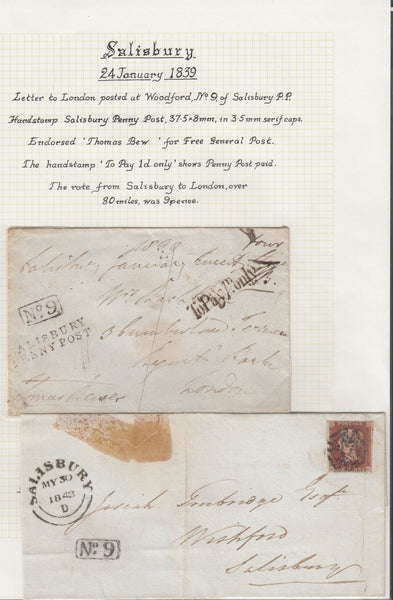 Salisbury
24 January 1839
Letter to London posted at Woodford, No. 9, of Salisbury P.P.
Handstamp Salisbury Penny Post, 37·5×8mm, in 3·5mm serif caps.
Endorsed 'Thomas Bew' for Free General Post.
The handstamp 'To Pay 1d. only' shows Penny Post paid.
The rate from Salisbury to London, over
80 miles, was 9 pence.
Salisbury January
To Pay 1d. only
No. 9
SALISBURY
PENNY POST
Park
London
POSTAGE
SALISBURY
MY 30
1843
D
No. 9
Josiah Trubridge Esqr
Wishford
Salisbury